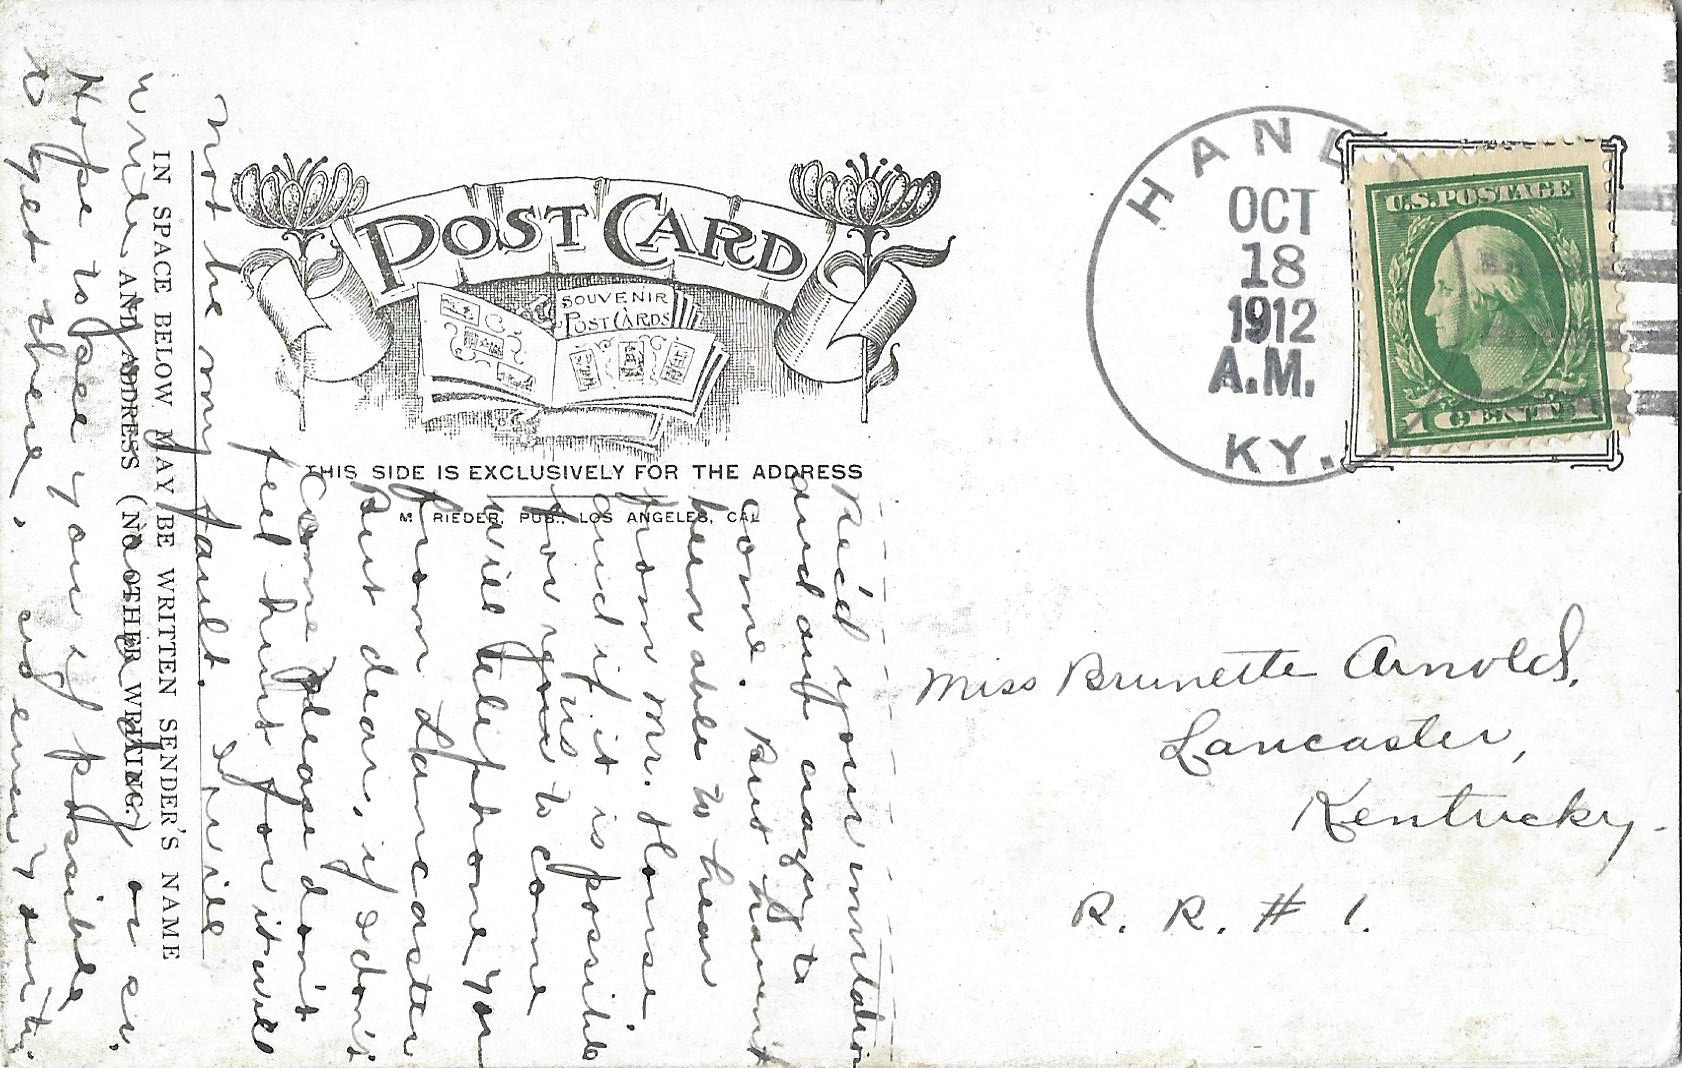 POST CARD
SOUVENIR
POST CARDS
THIS SIDE IS EXCLUSIVELY FOR THE ADDRESS
M. RIEDER, PUB., LOS ANGELES, CAL
HAN
OCT
18
1912
A.M.
KY.
U.S. POSTAGE
1 CENT 1
Miss Brunette Arnold,
Lancaster,
Kentucky.
R. R. # 1.
IN SPACE BELOW MAY BE WRITTEN SENDER'S NAME
AND ADDRESS (NO OTHER WRITING.)
Rec'd your invitation
and am crazy to
come. But haven't
been able to hear
from Mr. House.
and if it is possible
for us to come
will telephone you
from Lancaster
But dear, if I don't
come please don't
feel hurt for it will
not be my fault. I will
write
Hope to see you if possible
to get there.